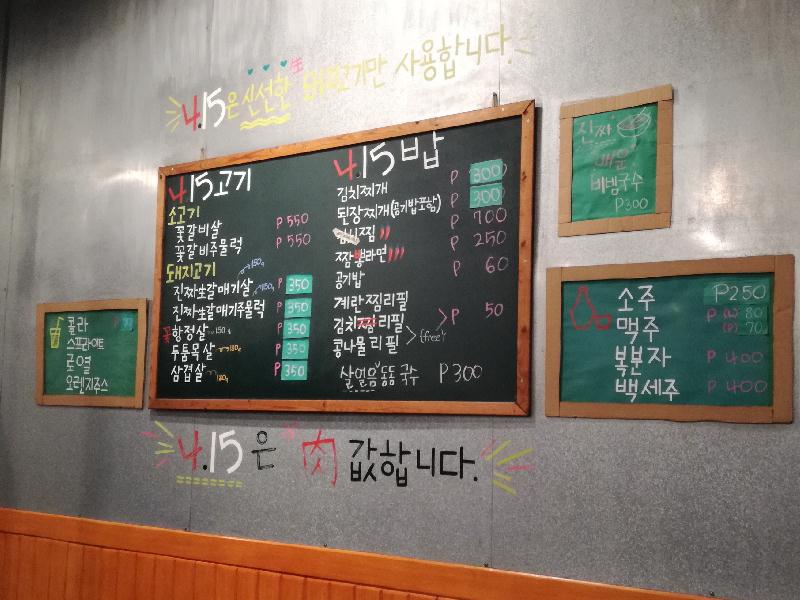 4.15은 신선한 生 돼지고기만 사용합니다.
4.15고기
소고기
꽃갈비살 P 550
꽃갈비주물럭 P 550
돼지고기
진짜生갈매기살 150g P 350
진짜生갈매기주물럭 150g P 350
항정살 150g P 350
두툼목살 180g P 350
삼겹살 180g P 350
4.15밥
김치찌개 P 300
된장찌개(공기밥포함) P 300
김치찜 P 700
짬뽕라면 P 250
공기밥 P 60
계란찜리필
김치리필 P 50
콩나물리필 (free)
살얼음동동국수 P300
콜라 P
스프라이트
로열
오렌지쥬스
진짜
매운
비빔국수
P300
소주 P250
맥주 P (L) 80
(P) 70
복분자 P 400
백세주 P 400
4.15은 肉 값합니다.